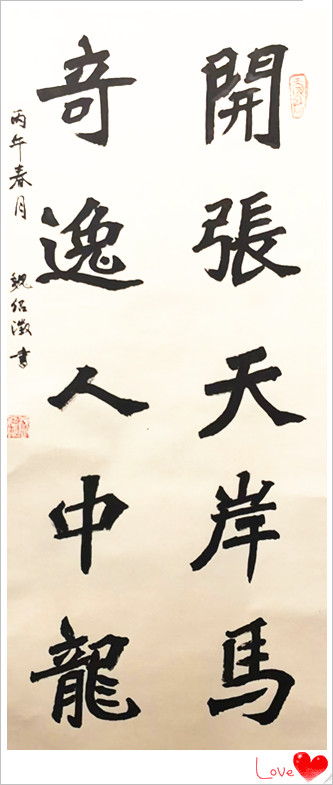 開張天岸馬
奇逸人中龍
丙午春月 魏紹澂書
Love